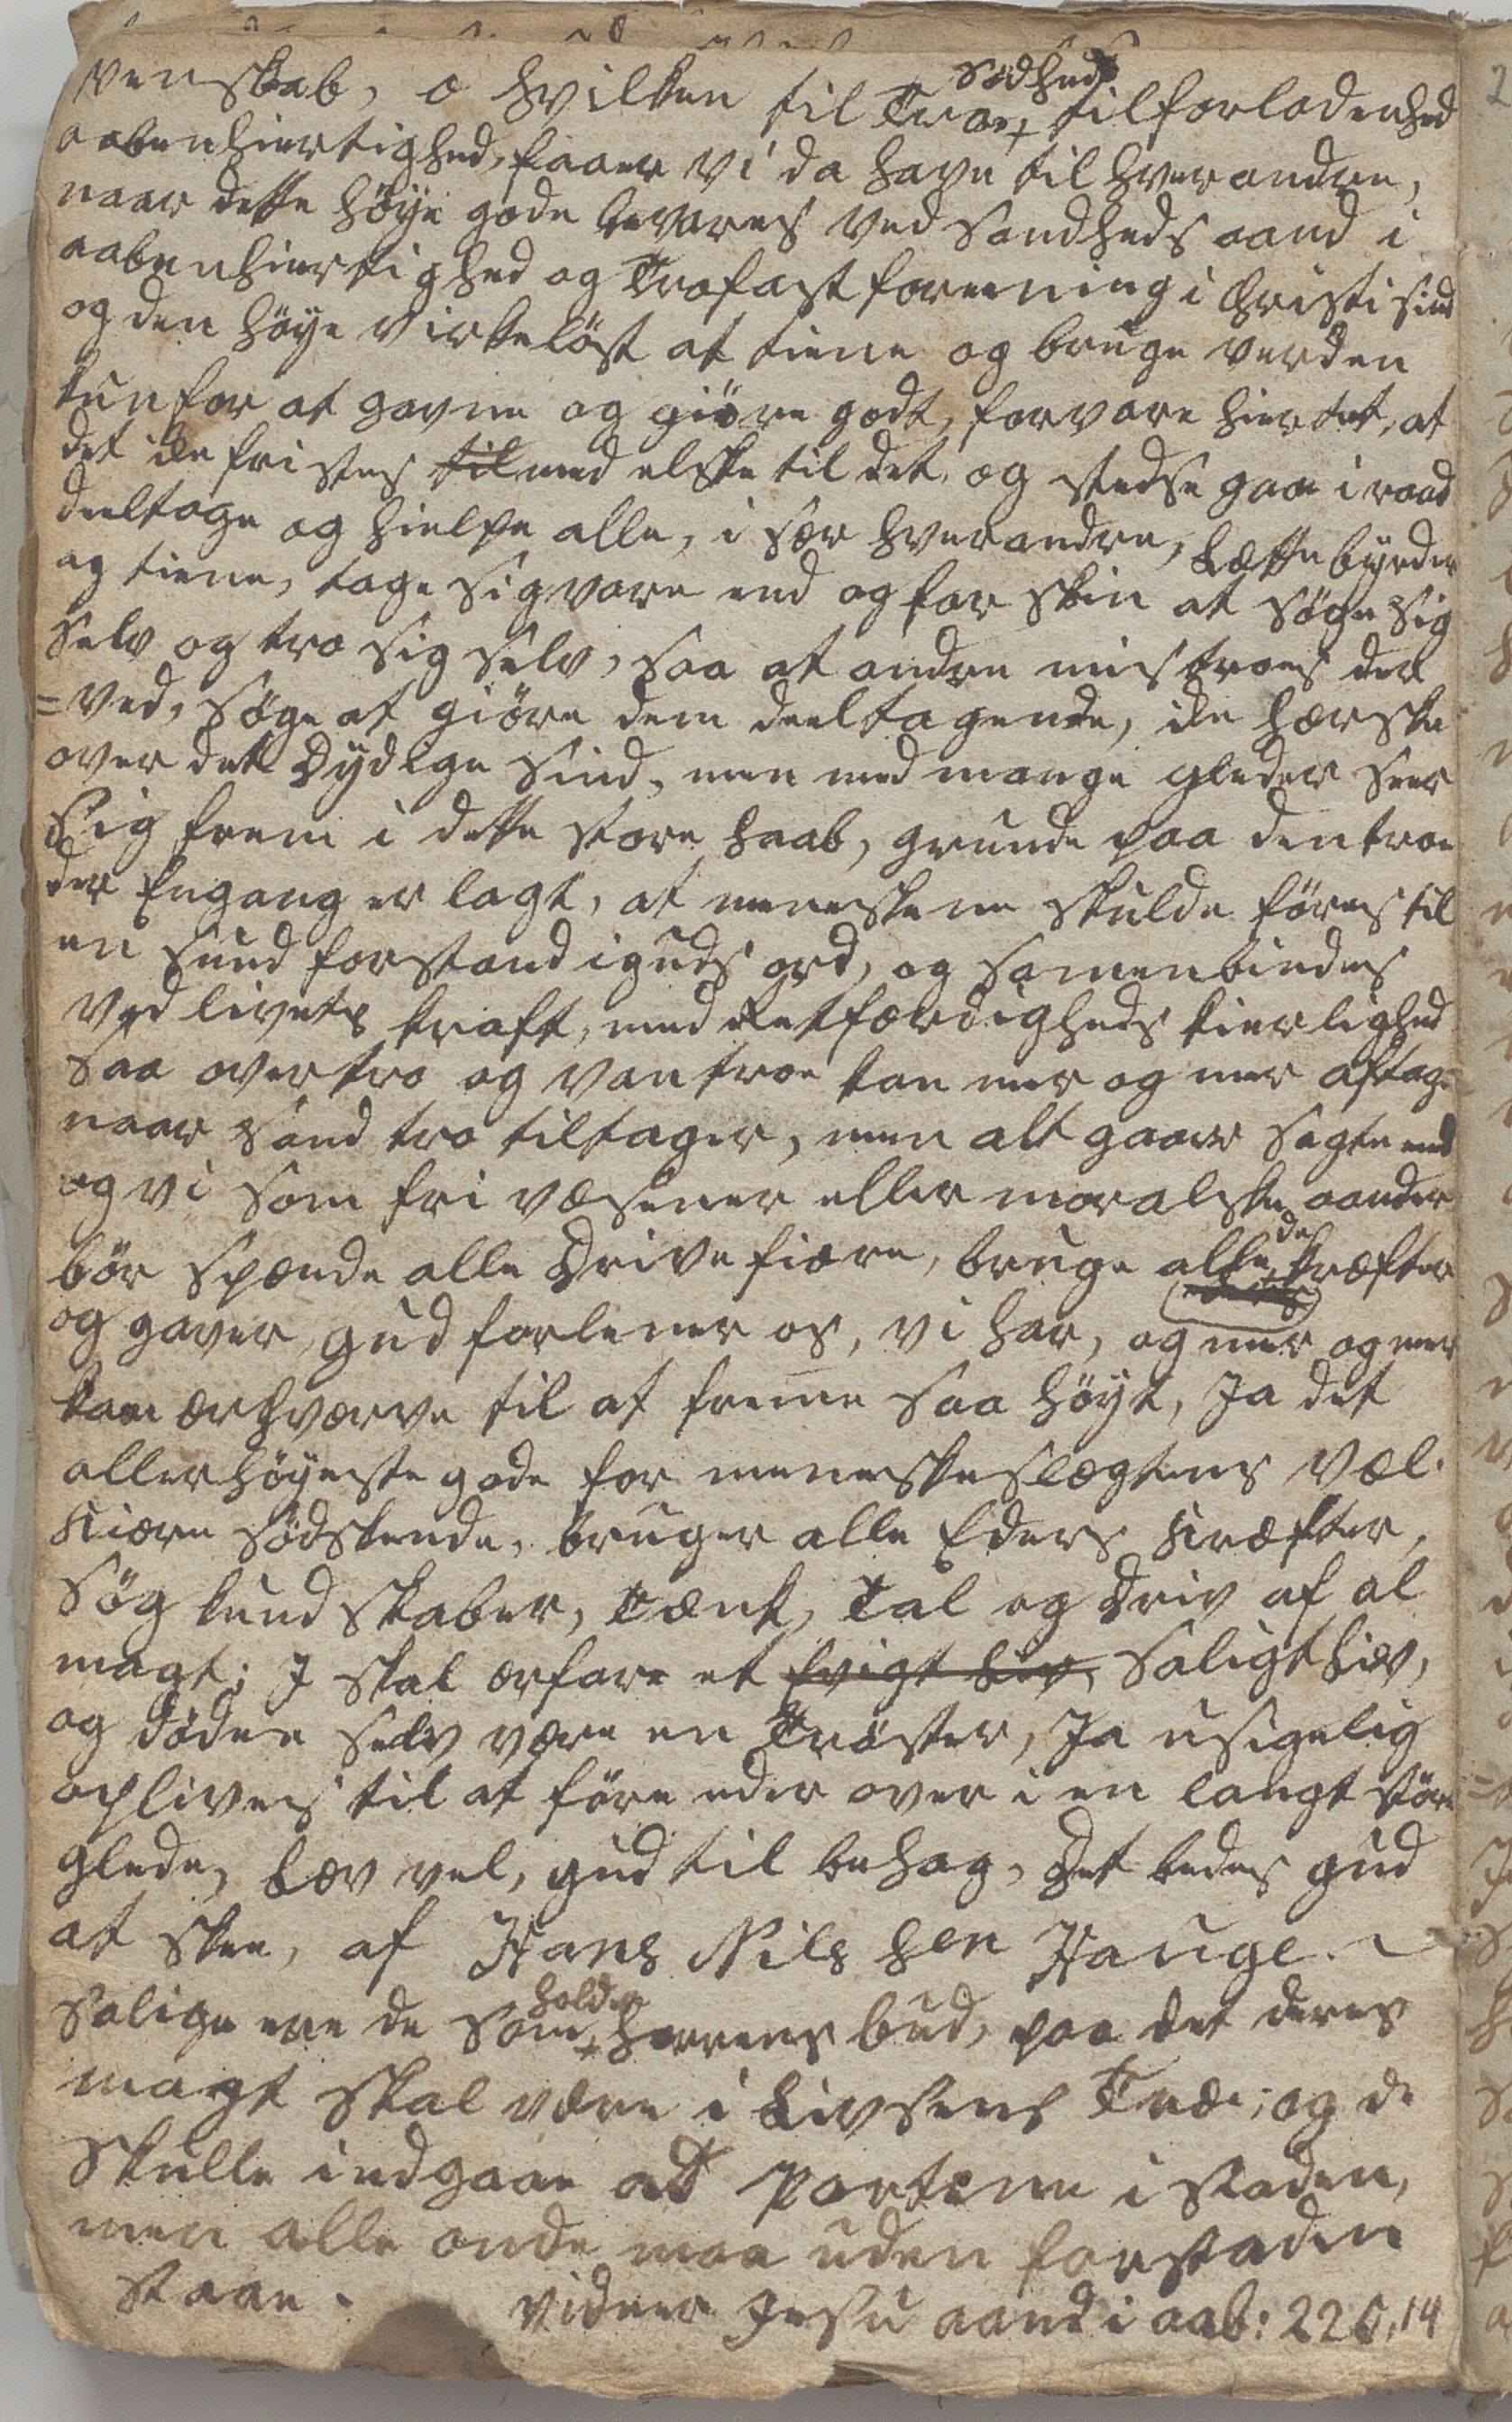 venskab, o hvilken til Troe+ sødhed tilforladenhed
aabenhiertighed, faaer vi da have til hverandre,
naar dette høye gode bevares ved sandheds aand i
aabenhiertighed og Trofast foreening i Christi sind
og den høye virkeløst at tiene og bruge verden
kun for at gavne og giøre godt, forvare hiertet, at
det ike fristes til med elske til det, og stedse gaae i raad
deeltage og hielpe alle, i sær hverandre, Lætte byrder
og tiene, tage sig vare end og for skin at søge sig
selv og tro sig selv, saa at andre mistroes der
=ved, søge at giøre dem deeltagende, ike herske
over det Dydige sind, men med mange gleder seer
Sig frem i dette store haab, grunde paa den troe
der Engang er lagt, at meneskene skulde føres til
en sund forstand i guds ord, og samenbindes
ved livets kraft, med Retfærdigheds kierlighed
saa overtro og vantroe kan mer og mer aftage
naar sand tro tiltager, men alt gaaer sagte med
og vi som fri væsener eller moralske aander
bør spænde alle Drivefiære, bruge alle de kræfter
og gaver, gud forlener os, vi har, og mer og mer
kan ærhverve til at freme saa høyt, Ja det
allerhøyeste gode for meneskeslægtens Væl.
Kiere sødskende, bruger alle Eders Kræfter,
søg kundskaber, Tænk, Tal og Driv af al
magt; I skal ærfare et Evigt Liv, saligt Liv,
og døden selv være en Trøster, Ja usigelig
oplives til at føre eder over i en langt støre
glede, Lev vel, gud til behag, Det bedes gud
at skee, af Hans Nils sen Hauge.
Salige ere de som+ holder herrens bud, paa det deres
magt skal være i Livsens Træe; og de
skulle indgaae ad Portene i staden,
men alle onde maa uden for staden
staae. vidner Jesu aand i aab: 22 C, 14